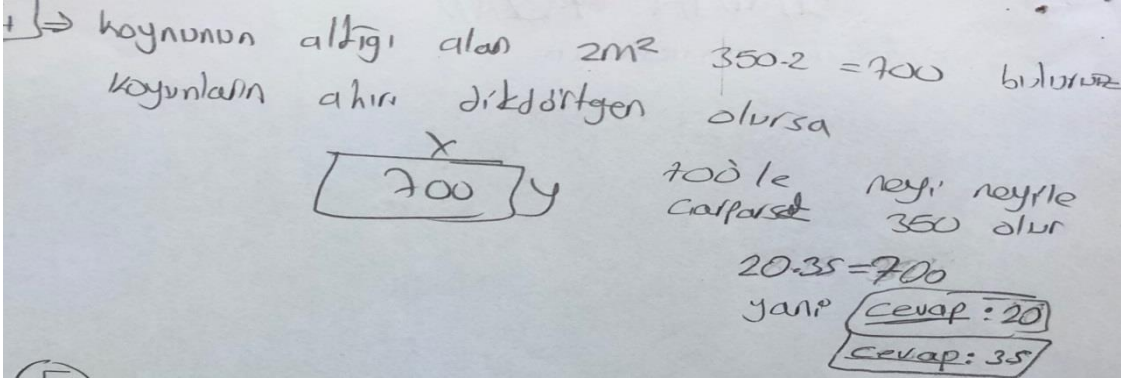 1) ⇒ Koynunun aldığı alan 2m² 350.2 = 700 buluruz
Koyunların ahırı dikdörtgen olursa
x
700 y
700 le neyi neyle
Çarparsak 350 olur
20.35 = 700
yani cevap : 20
cevap : 35